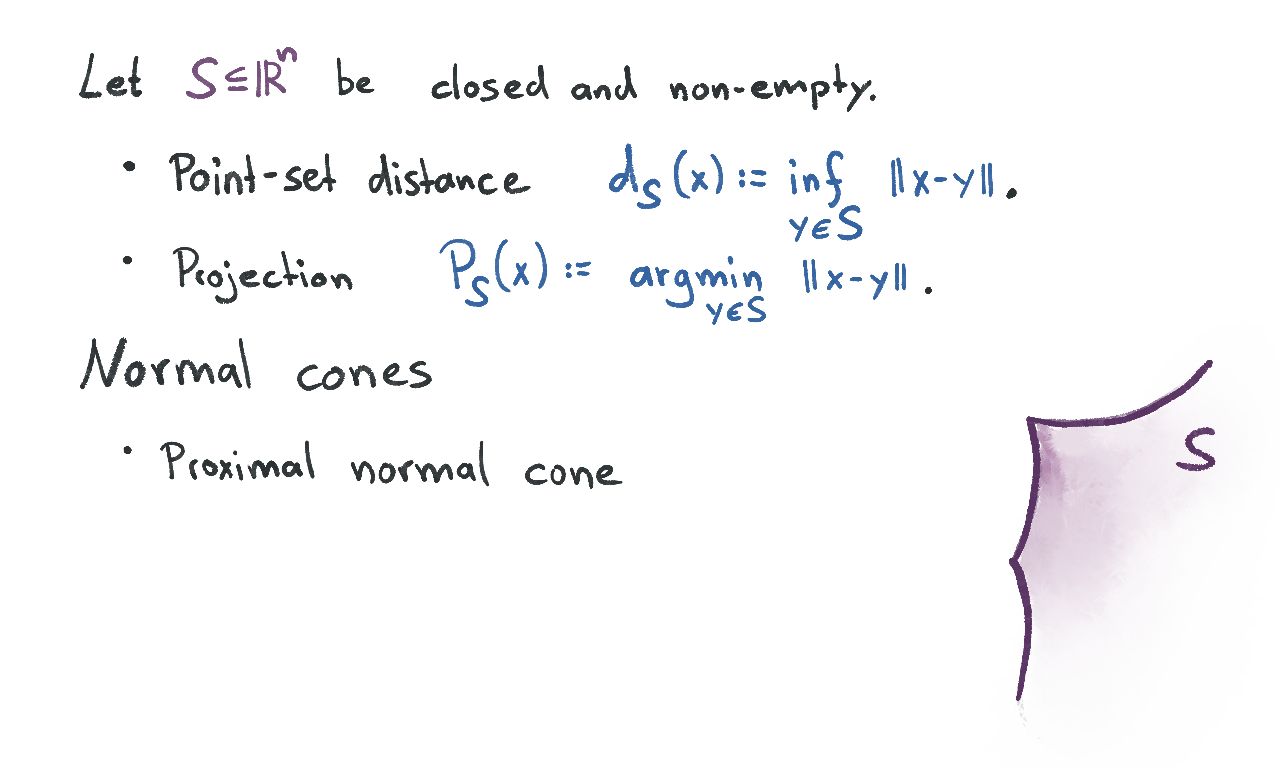 Let S⊆ℝⁿ be closed and non-empty.
• Point-set distance d_S(x) := inf_{y∈S} ‖x-y‖.
• Projection P_S(x) := argmin_{y∈S} ‖x-y‖.
Normal cones
• Proximal normal cone
S